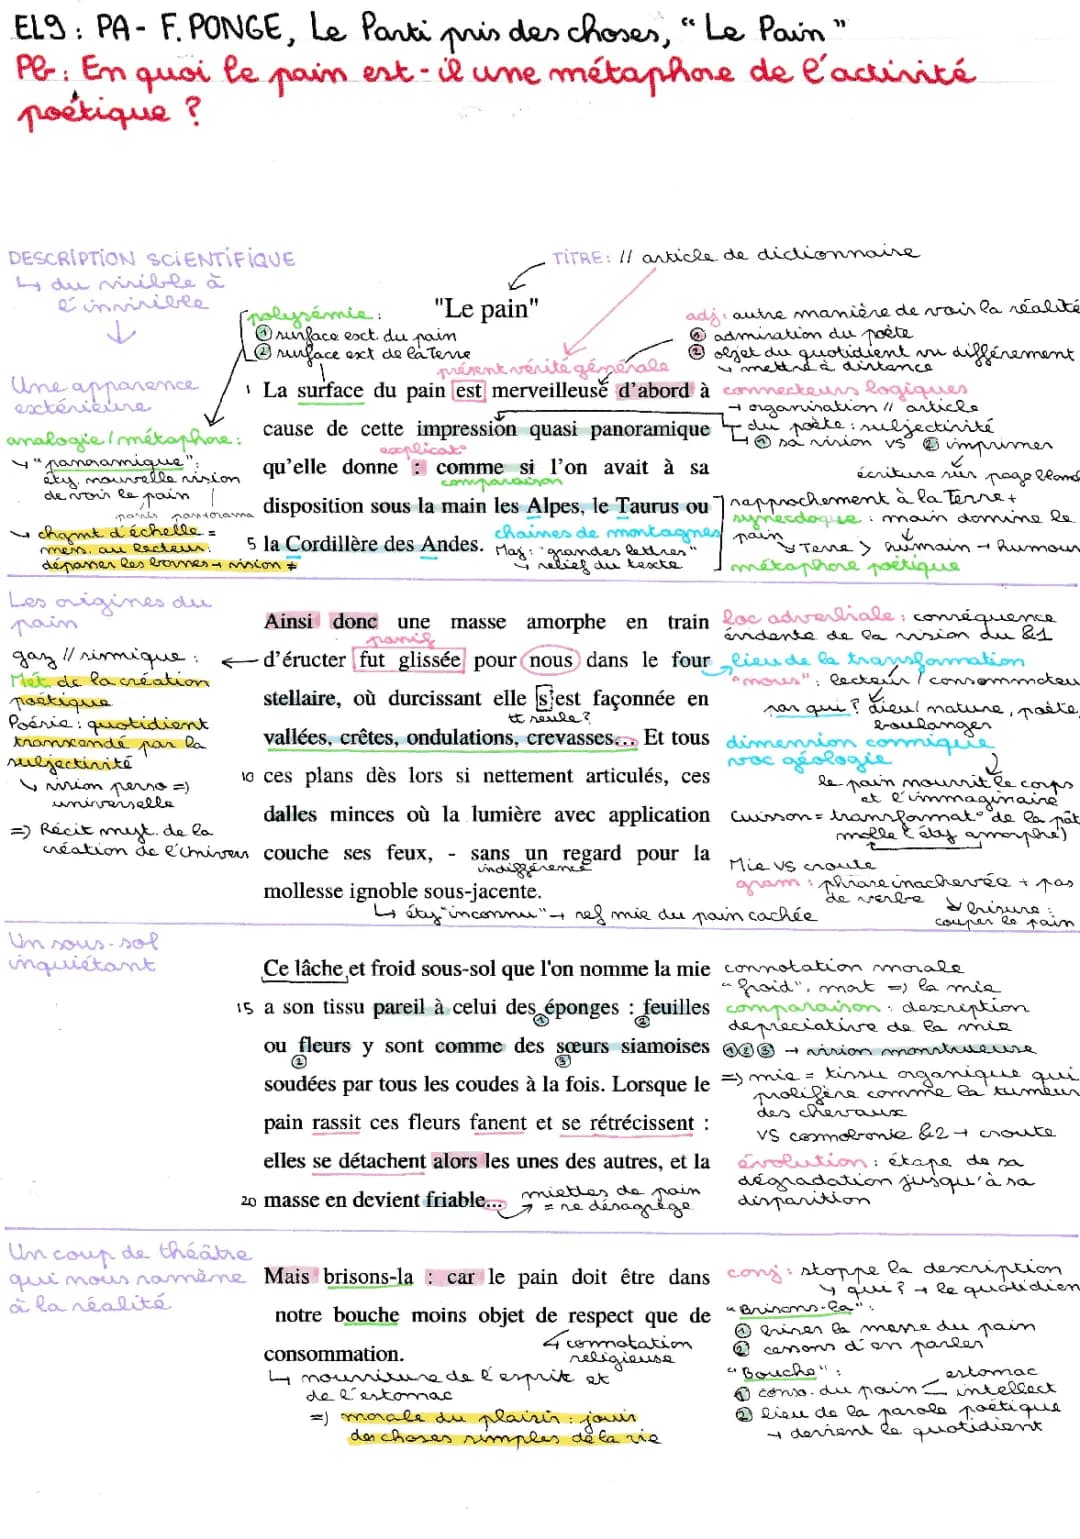 EL9 : PA - F. PONGE, Le Parti pris des choses, "Le Pain"
Pb : En quoi le pain est-il une métaphore de l'activité
poétique ?
DESCRIPTION SCIENTIFIQUE
↳ du visible à
l'invisible
TITRE : // article de dictionnaire
"Le pain"
polysémie :
① surface ext du pain
② surface ext de la Terre
adj. autre manière de voir la réalité
① admiration du poète
② objet du quotidien vu différement
↳ mettre à distance
présent vérité générale
Une apparence
extérieure
1 La surface du pain est merveilleuse d'abord à
connecteurs logiques
→ organisation // article
cause de cette impression quasi panoramique
↳ du poète : subjectivité
↳ ① sa vision vs ② imprimer
écriture sur page blanc
analogie / métaphore :
↳ "panoramique" :
éty. nouvelle vision
de voir le pain
panis panorama
explicat°
qu'elle donne : comme si l'on avait à sa
comparaison
disposition sous la main les Alpes, le Taurus ou
rapprochement à la Terre +
synecdoque : main domine le
pain
↳ Terre > humain → humour
métaphore poétique
↳ chgmt d'échelle =
mess. au lecteur :
dépasser les bornes → vision ≠
5 la Cordillère des Andes.
chaînes de montagnes
Maj : "grandes lettres"
↳ relief du texte
Les origines du
pain
Ainsi donc une masse amorphe en train
loc adverbiale : conséquence
évidente de la vision du §1
passif
gaz // sismique :
Mét de la création
poétique
Poésie : quotidien
transcendé par la
subjectivité
↳ vision perso =)
universelle
=) Récit myt. de la
création de l'univers
d'éructer fut glissée pour nous dans le four
lieu de la transformation
"nous" : lecteur / consommateu
par qui ? dieu / nature, poète,
boulanger
stellaire, où durcissant elle s'est façonnée en
tt seule ?
vallées, crêtes, ondulations, crevasses... Et tous
dimension cosmique
voc géologie
10 ces plans dès lors si nettement articulés, ces
le pain nourrit le corps
et l'immaginaire
dalles minces où la lumière avec application
Cuisson = transformat° de la pât
molle (éty amorphe)
couche ses feux, - sans un regard pour la
indifférence
Mie vs croute
mollesse ignoble sous-jacente.
gram : phrase inachevée + pas
de verbe
↳ brisure :
couper le pain
↳ éty "inconnu" → ref mie du pain cachée
Un sous-sol
inquiétant
Ce lâche et froid sous-sol que l'on nomme la mie
connotation morale
"froid", mort =) la mie
15 a son tissu pareil à celui des éponges : feuilles
① ②
comparaison : description
depréciative de la mie
ou fleurs y sont comme des sœurs siamoises
② ③
①②③ → vision monstrueuse
soudées par tous les coudes à la fois. Lorsque le
=) mie = tissu organique qui
prolifère comme la tumeur
des chevaux
pain rassit ces fleurs fanent et se rétrécissent :
VS cosmobonie §2 → croute
elles se détachent alors les unes des autres, et la
évolution : étape de sa
dégradation jusqu'à sa
disparition
20 masse en devient friable...
miettes de pain
= se désagrège
Un coup de théâtre
qui nous ramène
à la réalité
Mais brisons-la : car le pain doit être dans
conj : stoppe la description
↳ qui ? → le quotidien
notre bouche moins objet de respect que de
"Brisons-la" :
① briser la messe du pain
② cessons d'en parler
consommation.
↳ connotation
religieuse
↳ nourriture de l'esprit et
de l'estomac
=) morale du plaisir : jouir
des choses simples de la vie
"Bouche" :
① conso. du pain < estomac
intellect
② lieu de la parole poétique
→ devient le quotidient